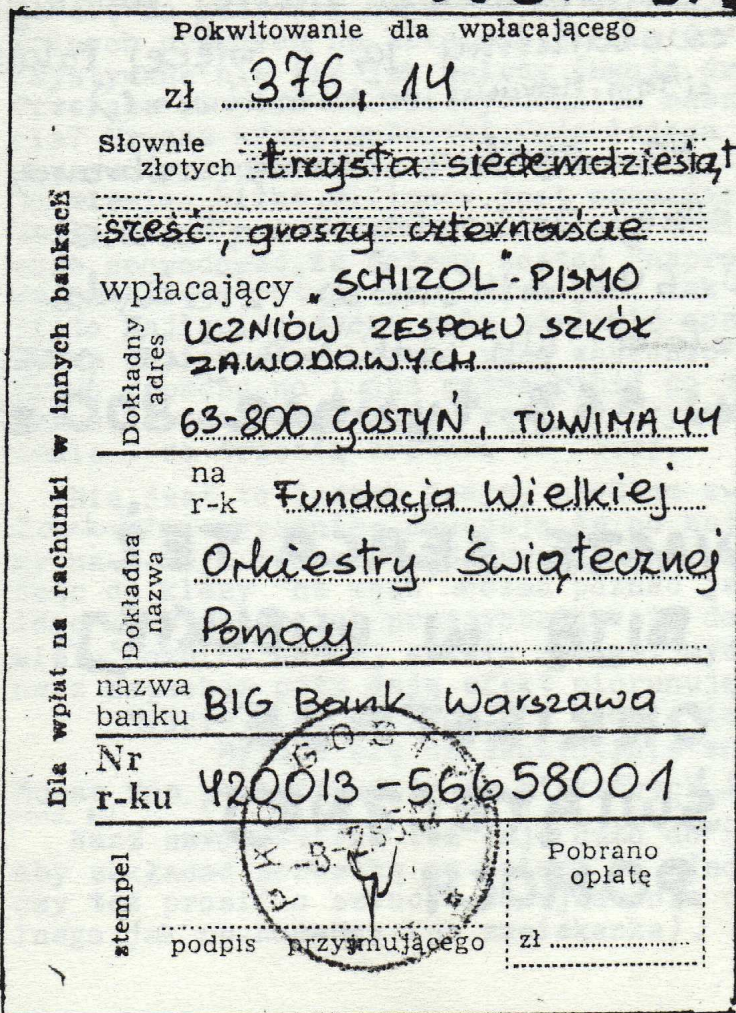 Pokwitowanie dla wpłacającego
zł 376,14
Słownie złotych trzysta siedemdziesiąt
sześć, groszy czternaście
wpłacający "SCHIZOL"-PISMO
Dokładny adres
UCZNIÓW ZESPOŁU SZKÓŁ
ZAWODOWYCH
63-800 GOSTYŃ, TUWIMA 44
na r-k Fundacja Wielkiej
Dokładna nazwa
Orkiestry Świątecznej
Pomocy
nazwa banku BIG Bank Warszawa
Nr r-ku 420013-56658001
stempel
PKO GOST
podpis przyjmującego
Pobrano
opłatę
zł
Dla wpłat na rachunki w innych bankach